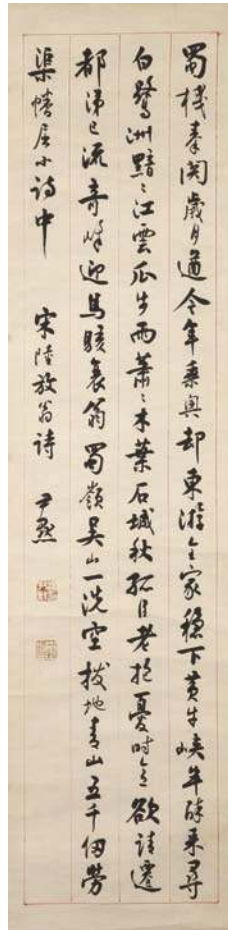 蜀棧秦關歲月遒今年乘興却東游全家穩下黃牛峽半醉來尋
白鷺洲黯〻江雲瓜步雨蕭〻木葉石城秋孤臣老抱憂時意欲請遷
都涕已流奇峰迎馬駭衰翁蜀嶺吳山一洗空拔地青山五千仞勞
渠蟠屈小詩中 宋陸放翁詩 尹默